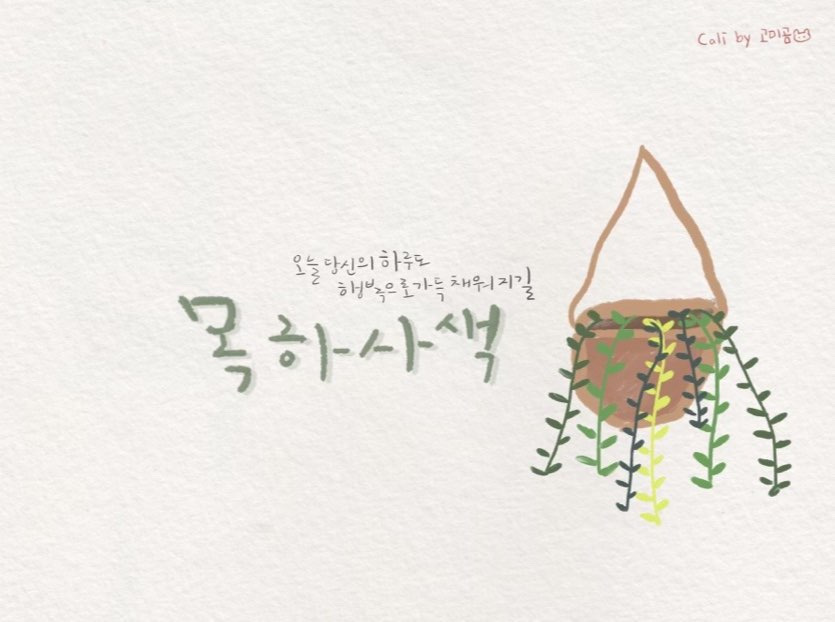 Cali by 고미곰
오늘 당신의 하루도
행복으로 가득 채워지길
목하사색